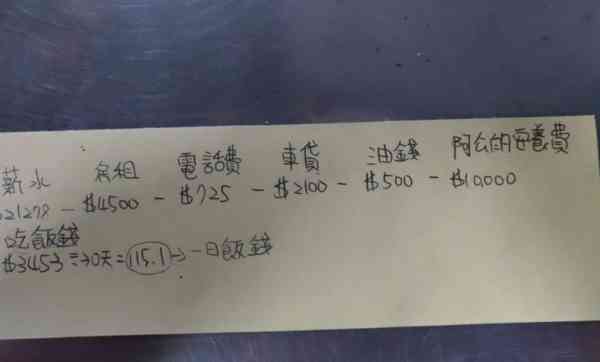 薪水 房租 電話費 車貸 油錢 阿公的安養費
21278 - $4500 - $725 - $2100 - $500 - $10,000
吃飯錢
$3453 ÷30天=115.1→一日飯錢